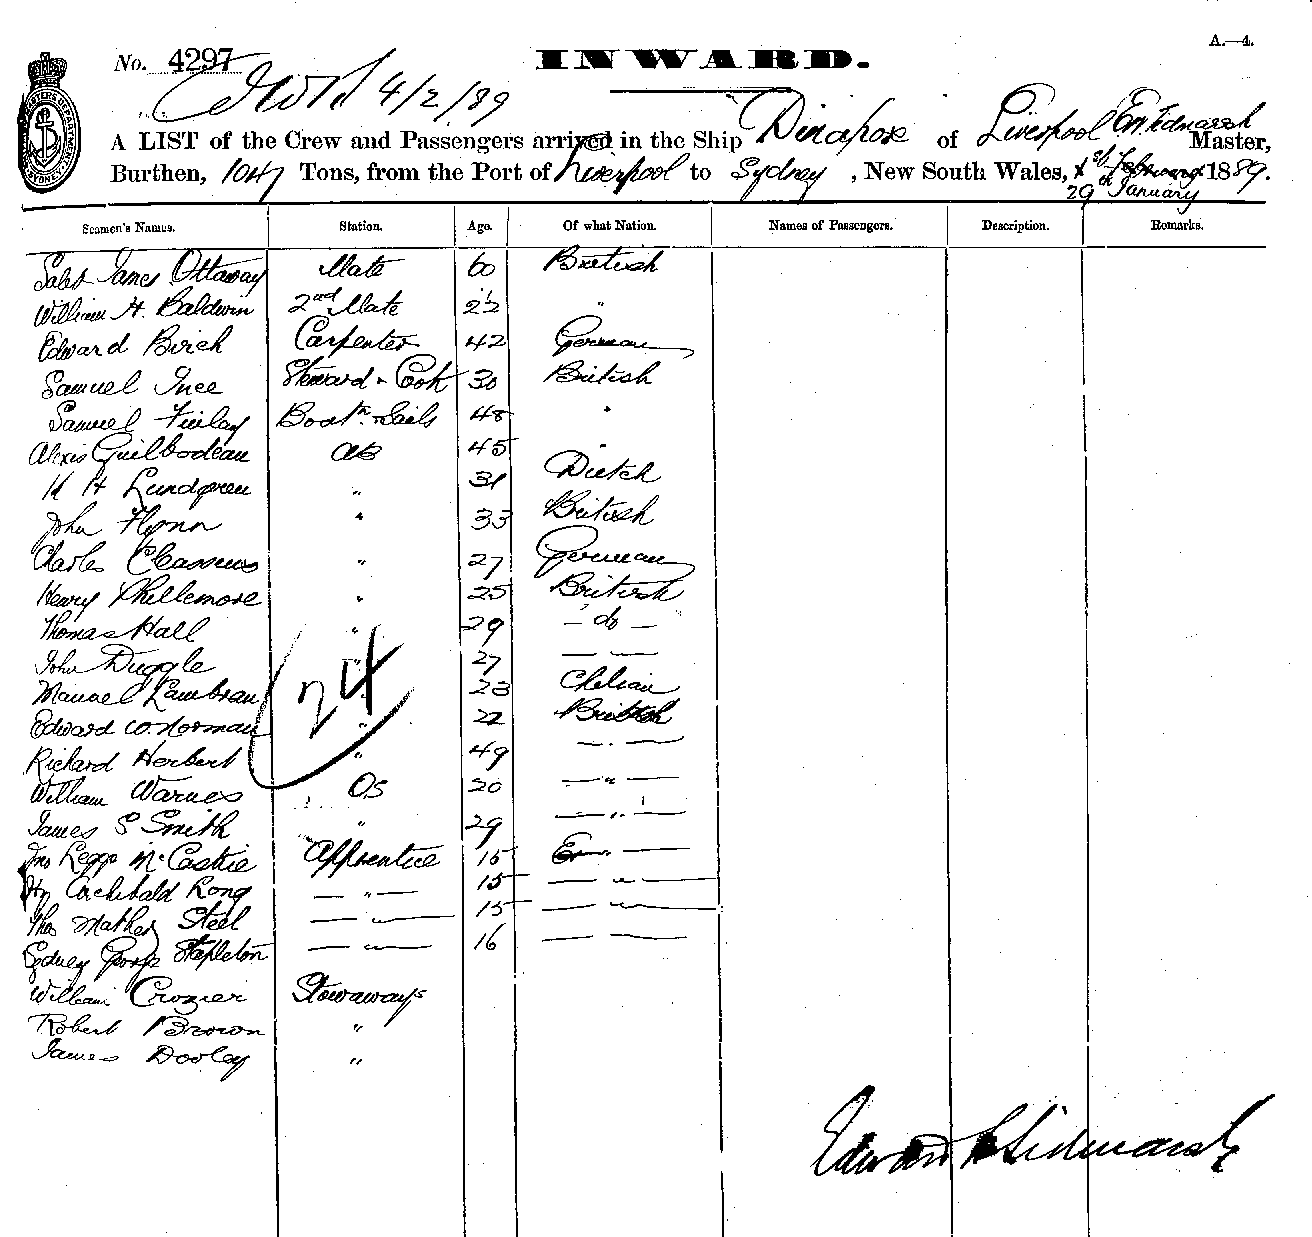 A.—4.
No. 4297
INWARD.
4/2/89
A LIST of the Crew and Passengers arrived in the Ship Dinapore of Liverpool Master,
Burthen, 1047 Tons, from the Port of Liverpool to Sydney, New South Wales, 1st February 1889.
29th January
Seamen's Names. Station. Age. Of what Nation. Names of Passengers. Description. Remarks.
James Ottaway Mate 60 British
William H. Baldwin 2nd Mate 22 "
Edward Birch Carpenter 42 German
Samuel Ince Steward & Cook 30 British
Samuel Finlay Boatn & Sails 48 "
Alexis Guilbodeau AB 45 "
H H Lundgren " 31 Dutch
John Flynn " 33 British
Charles Classens " 27 German
Henry Phillemore " 25 British
Thomas Hall " 29 — do —
John Duggle " 27 — —
Manuel Lambran " 23 Chilian
Edward W. Norman " 22 British
Richard Herbert " 49 — " —
William Warnes OS 20 — " —
James S Smith " 29 — " —
Jno Legge McCaskie Apprentice 15 — " —
Hy Archibald Long — " — 15 — " —
Thos Mather Steel — " — 15 — " —
Sydney George Stapleton — " — 16 — —
William Crozier Stowaways
Robert Brown "
James Dooley "
24
Edward Tidmarsh